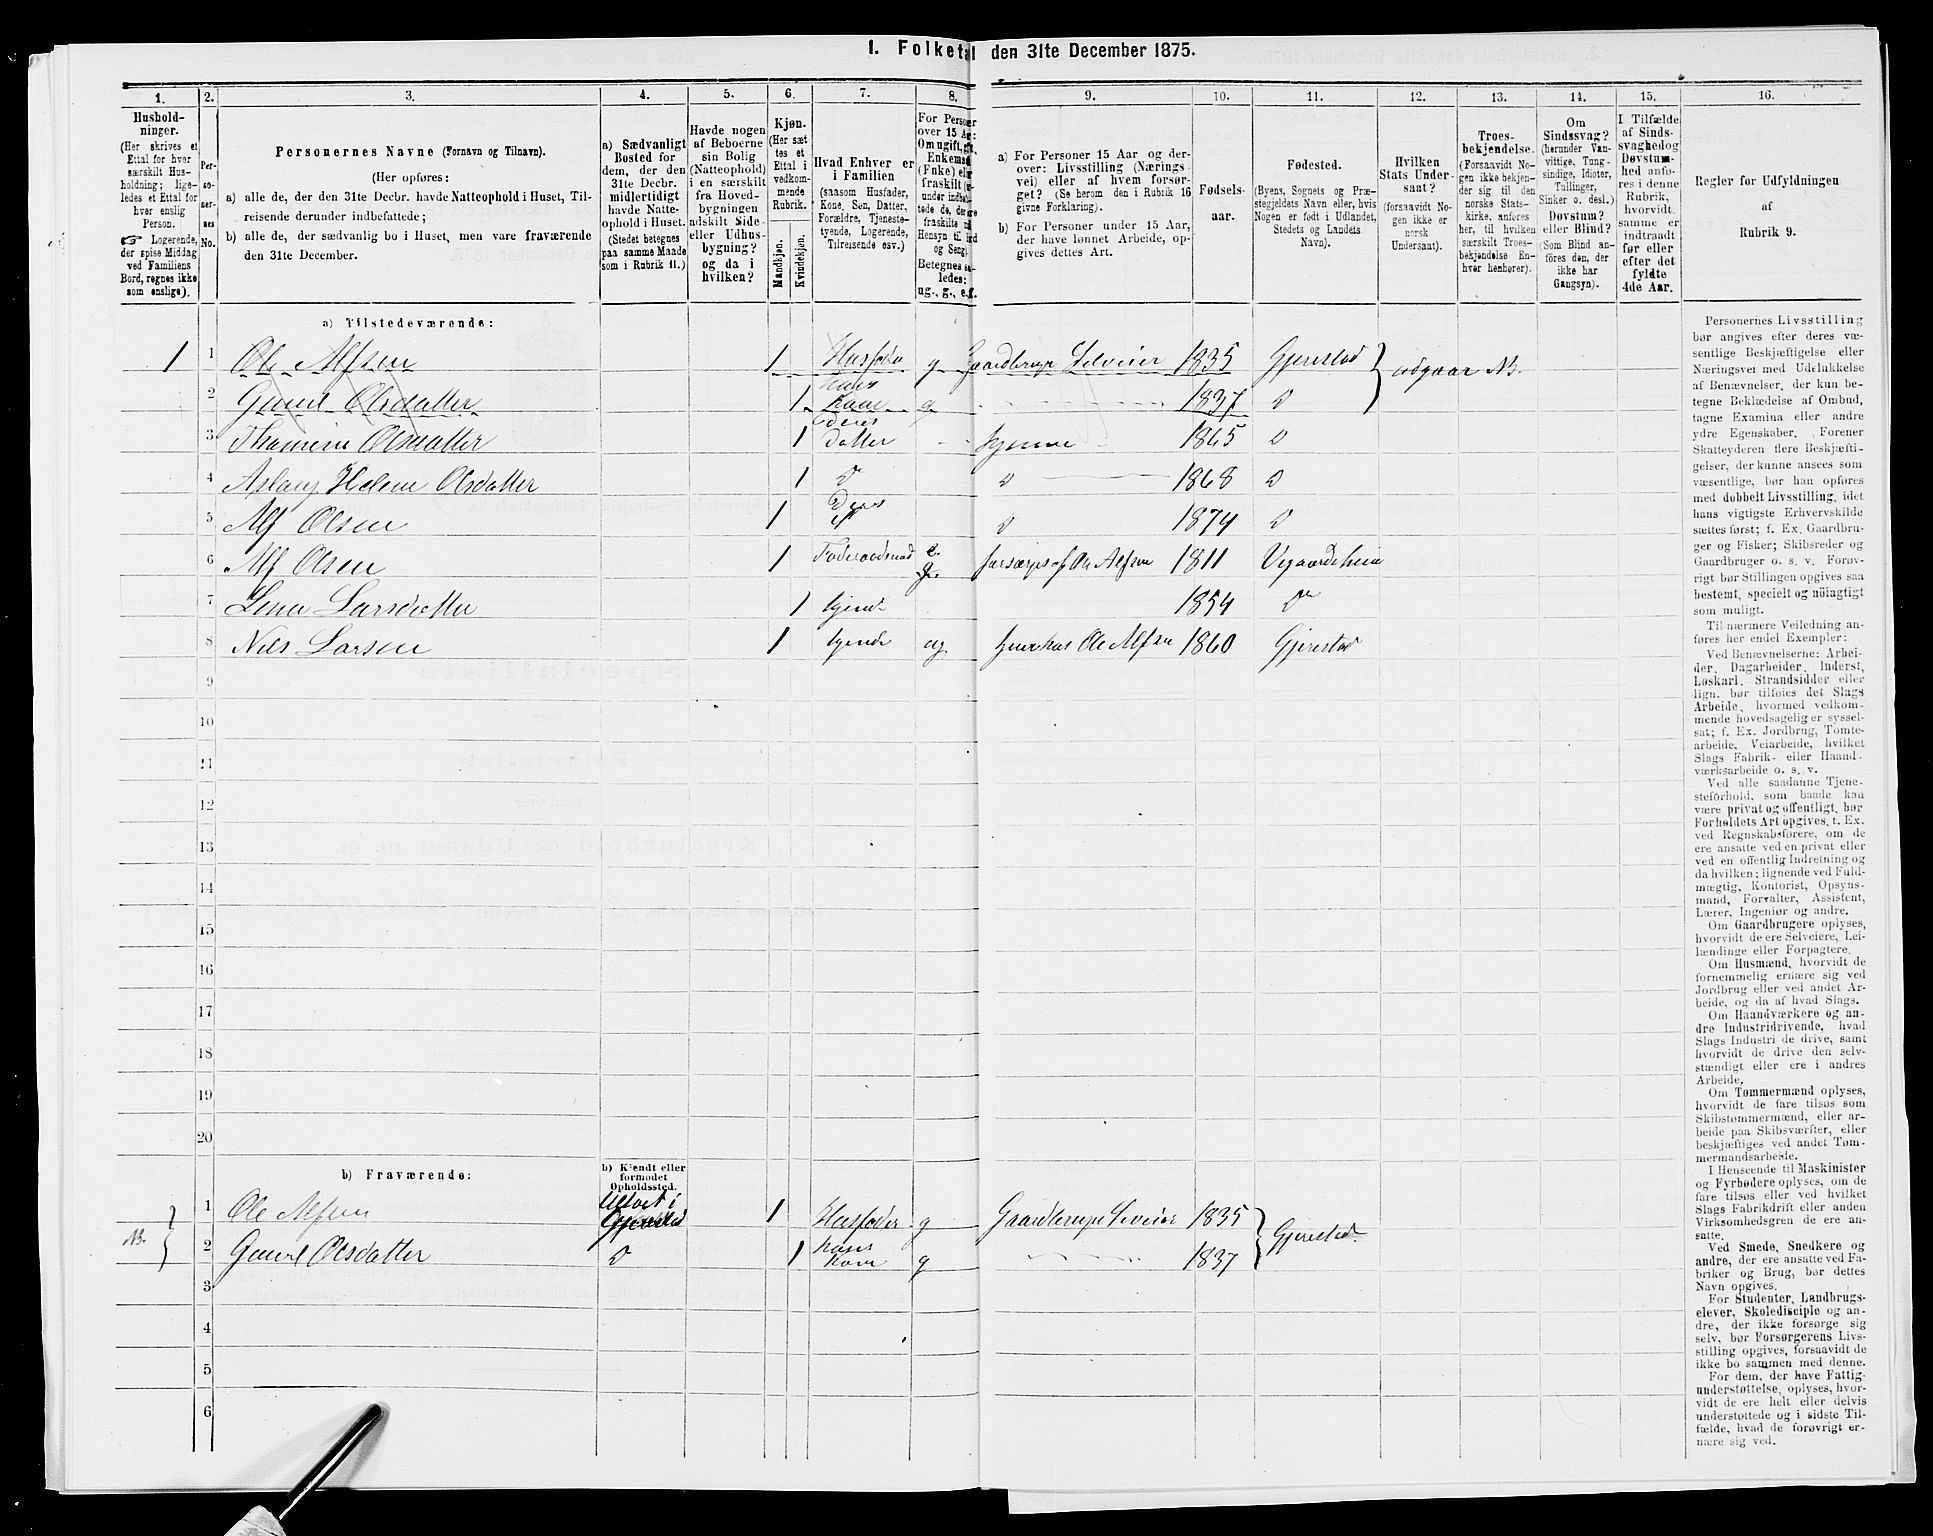 1. Folketal den 31te December 1875.
1. 2. 3. 4. 5. 6. 7. 8. 9. 10. 11. 12. 13. 14. 15. 16.
Hushold-
ninger.
(Her skrives et
Ettal for hver
særskilt Hus-
holdning; lige-
ledes et Ettal for
hver enslig
Person.
☞ Logerende,
der spise Middag
ved Familiens
Bord, regnes ikke
som enslige).
Per-
so-
ner-
nes
No.
Personernes Navne (Fornavn og Tilnavn).
(Her opføres:
a) alle de, der den 31te Decbr. havde Natteophold i Huset, Til-
reisende derunder indbefattede;
b) alle de, der sædvanlig bo i Huset, men vare fraværende
den 31te December.
a) Sædvanligt
Bosted for
dem, der den
31te Decbr.
midlertidigt
havde Natte-
ophold i Huset.
(Stedet betegnes
paa samme Maade
som i Rubrik 11.)
Havde nogen
af Beboerne
sin Bolig
(Natteophold)
i en særskilt
fra Hoved-
bygningen
adskilt Side-
eller Udhus-
bygning?
og da i
hvilken?
Kjøn.
(Her sæt
tes et
Ettal i
vedkom-
mende
Rubrik.
Mandkjøn.
Kvindekjøn.
Hvad Enhver er
i Familien
(saasom Husfader,
Kone, Søn, Datter,
Forældre, Tjeneste-
tyende, Logerende,
Tilreisende osv.)
For Personer
over 15 Aar:
Om ugift, gift,
Enkemand
(Enke) eller
fraskilt
Betegnes saa-
ledes:
ug., g., e., f.
a) For Personer 15 Aar og der-
over: Livsstilling (Nærings-
vei) eller af hvem forsør-
get? (Se herom den i Rubrik 16
givne Forklaring).
b) For Personer under 15 Aar,
der have lønnet Arbeide, op-
gives dettes Art.
Fødsels-
aar.
Fødested.
(Byens, Sognets og Præ-
stegjeldets Navn eller, hvis
Nogen er født i Udlandet,
Stedets og Landets
Navn).
Hvilken
Stats Under-
saat?
(forsaavidt No-
gen ikke er
norsk
Undersaat).
Troes-
bekjendelse.
(Forsaavidt No-
gen ikke bekjen-
der sig til den
norske Stats-
kirke, anføres
her, til hvilken
særskilt Troes-
bekjendelse En-
hver henhører).
Om
Sindssvag?
(herunder Van-
vittige, Tung-
sindige, Idioter,
Tullinger,
Sinker o. desl.)
Døvstum?
eller Blind?
(Som Blind an-
føres den, der
ikke har
Gangsyn).
I Tilfælde
af Sinds-
svaghed og
Døvstum-
hed anfø-
res i denne
Rubrik,
hvorvidt
samme er
indtraadt
før eller
efter det
fyldte
4de Aar.
Regler for Udfyldningen
af
Rubrik 9.
a) Tilstedeværende:
1 1 Ole Alfsen 1 Husfader g Gaardbruger Selveier 1835 Gjerestad } udgaar NB.
2 Gunil Olsdatter 1 hans Kone g 1837 D
3 Thomine Olsdatter 1 deres datter hjemme 1865 D
4 Aslaug Helene Olsdatter 1 D D 1868 D
5 Alf Olsen 1 D 1874 D
6 Alf Olsen 1 Foderaadsmand e. forsørges af Ole Alfsen 1811 Vegaardsheien
7 Lena Larsdatter 1 tjende 1854 D
8 Niels Larsen 1 tjende ug Ole Alfsen 1860 Gjerestad
9
10
11
12
13
14
15
16
17
18
19
20
b) Fraværende:
b) Kjendt eller
formodet
Opholdssted.
NB. } 1 Ole Alfsen Gjerestad 1 Husfader g Gaardbruger Selveier 1835 } Gjerestad
2 Gunil Olsdatter D 1 hans Kone g 1837
3
4
5
6
Personernes Livsstilling
bør angives efter deres væ-
sentlige Beskjæftigelse eller
Næringsvei med Udelukkelse
af Benævnelser, der kun be-
tegne Beklædelse af Ombud,
tagne Examina eller andre
ydre Egenskaber. Forener
Skatteyderen flere Beskjæfti-
gelser, der kunne ansees som
væsentlige, bør han opføres
med dobbelt Livsstilling, idet
hans vigtigste Erhvervskilde
sættes først; f. Ex. Gaardbru-
ger og Fisker; Skibsreder og
Gaardbruger o. s. v. Forøv-
rigt bør Stillingen opgives saa
bestemt, specielt og nøiagtigt
som muligt.
Til nærmere Veiledning an-
føres her endel Exempler:
Ved Benævnelserne: Arbei-
der, Dagarbeider, Inderst,
Løskarl, Strandsidder eller
lign. bør tilføies det Slags
Arbeide, hvormed vedkom-
mende hovedsagelig er syssel-
sat; f. Ex. Jordbrug, Tomte-
arbeide, Veiarbeide, hvilket
Slags Fabrik- eller Haand-
værksarbeide o. s. v.
Ved alle saadanne Tjene-
steforhold, som baade kan
være privat og offentligt, bør
Forholdets Art opgives, t. Ex.
ved Regnskabsførere, om de
ere ansatte ved en privat eller
ved en offentlig Indretning og
da hvilken; lignende ved Fuld-
mægtig, Kontorist, Opsyns-
mand, Forvalter, Assistent,
Lærer, Ingeniør og andre.
Om Gaardbrugere oplyses,
hvorvidt de ere Selveiere, Lei-
lændinge eller Forpagtere.
Om Husmænd, hvorvidt de
fornemmelig ernære sig ved
Jordbrug eller ved andet Ar-
beide, og da af hvad Slags.
Om Haandværkere og an-
dre Industridrivende, hvad
Slags Industri de drive, samt
hvorvidt de drive den selv-
stændigt eller ere i andres
Arbeide.
Om Tømmermænd oplyses,
hvorvidt de fare tilsøs som
Skibstømmermænd, eller ar-
beide paa Skibsværfter, eller
beskjæftiges ved andet Tøm-
mermandsarbeide.
I Henseende til Maskinister
og Fyrbødere oplyses, om de
fare tilsøs eller ved hvilket
Slags Fabrikdrift eller anden
Virksomhedsgren de ere an-
satte.
Ved Smede, Snedkere og
andre, der ere ansatte ved Fa-
briker og Brug, bør dettes
Navn opgives.
For Studenter, Landbrugs-
elever, Skoledisciple og an-
dre, der ikke forsørge sig
selv, bør Forsørgerens Livs-
stilling opgives, forsaavidt de
ikke bo sammen med denne.
For dem, der have Fattig-
understøttelse, oplyses, hvor-
vidt de ere helt eller delvis
understøttede og i sidste Til-
fælde, hvad de forøvrigt er-
nære sig ved.